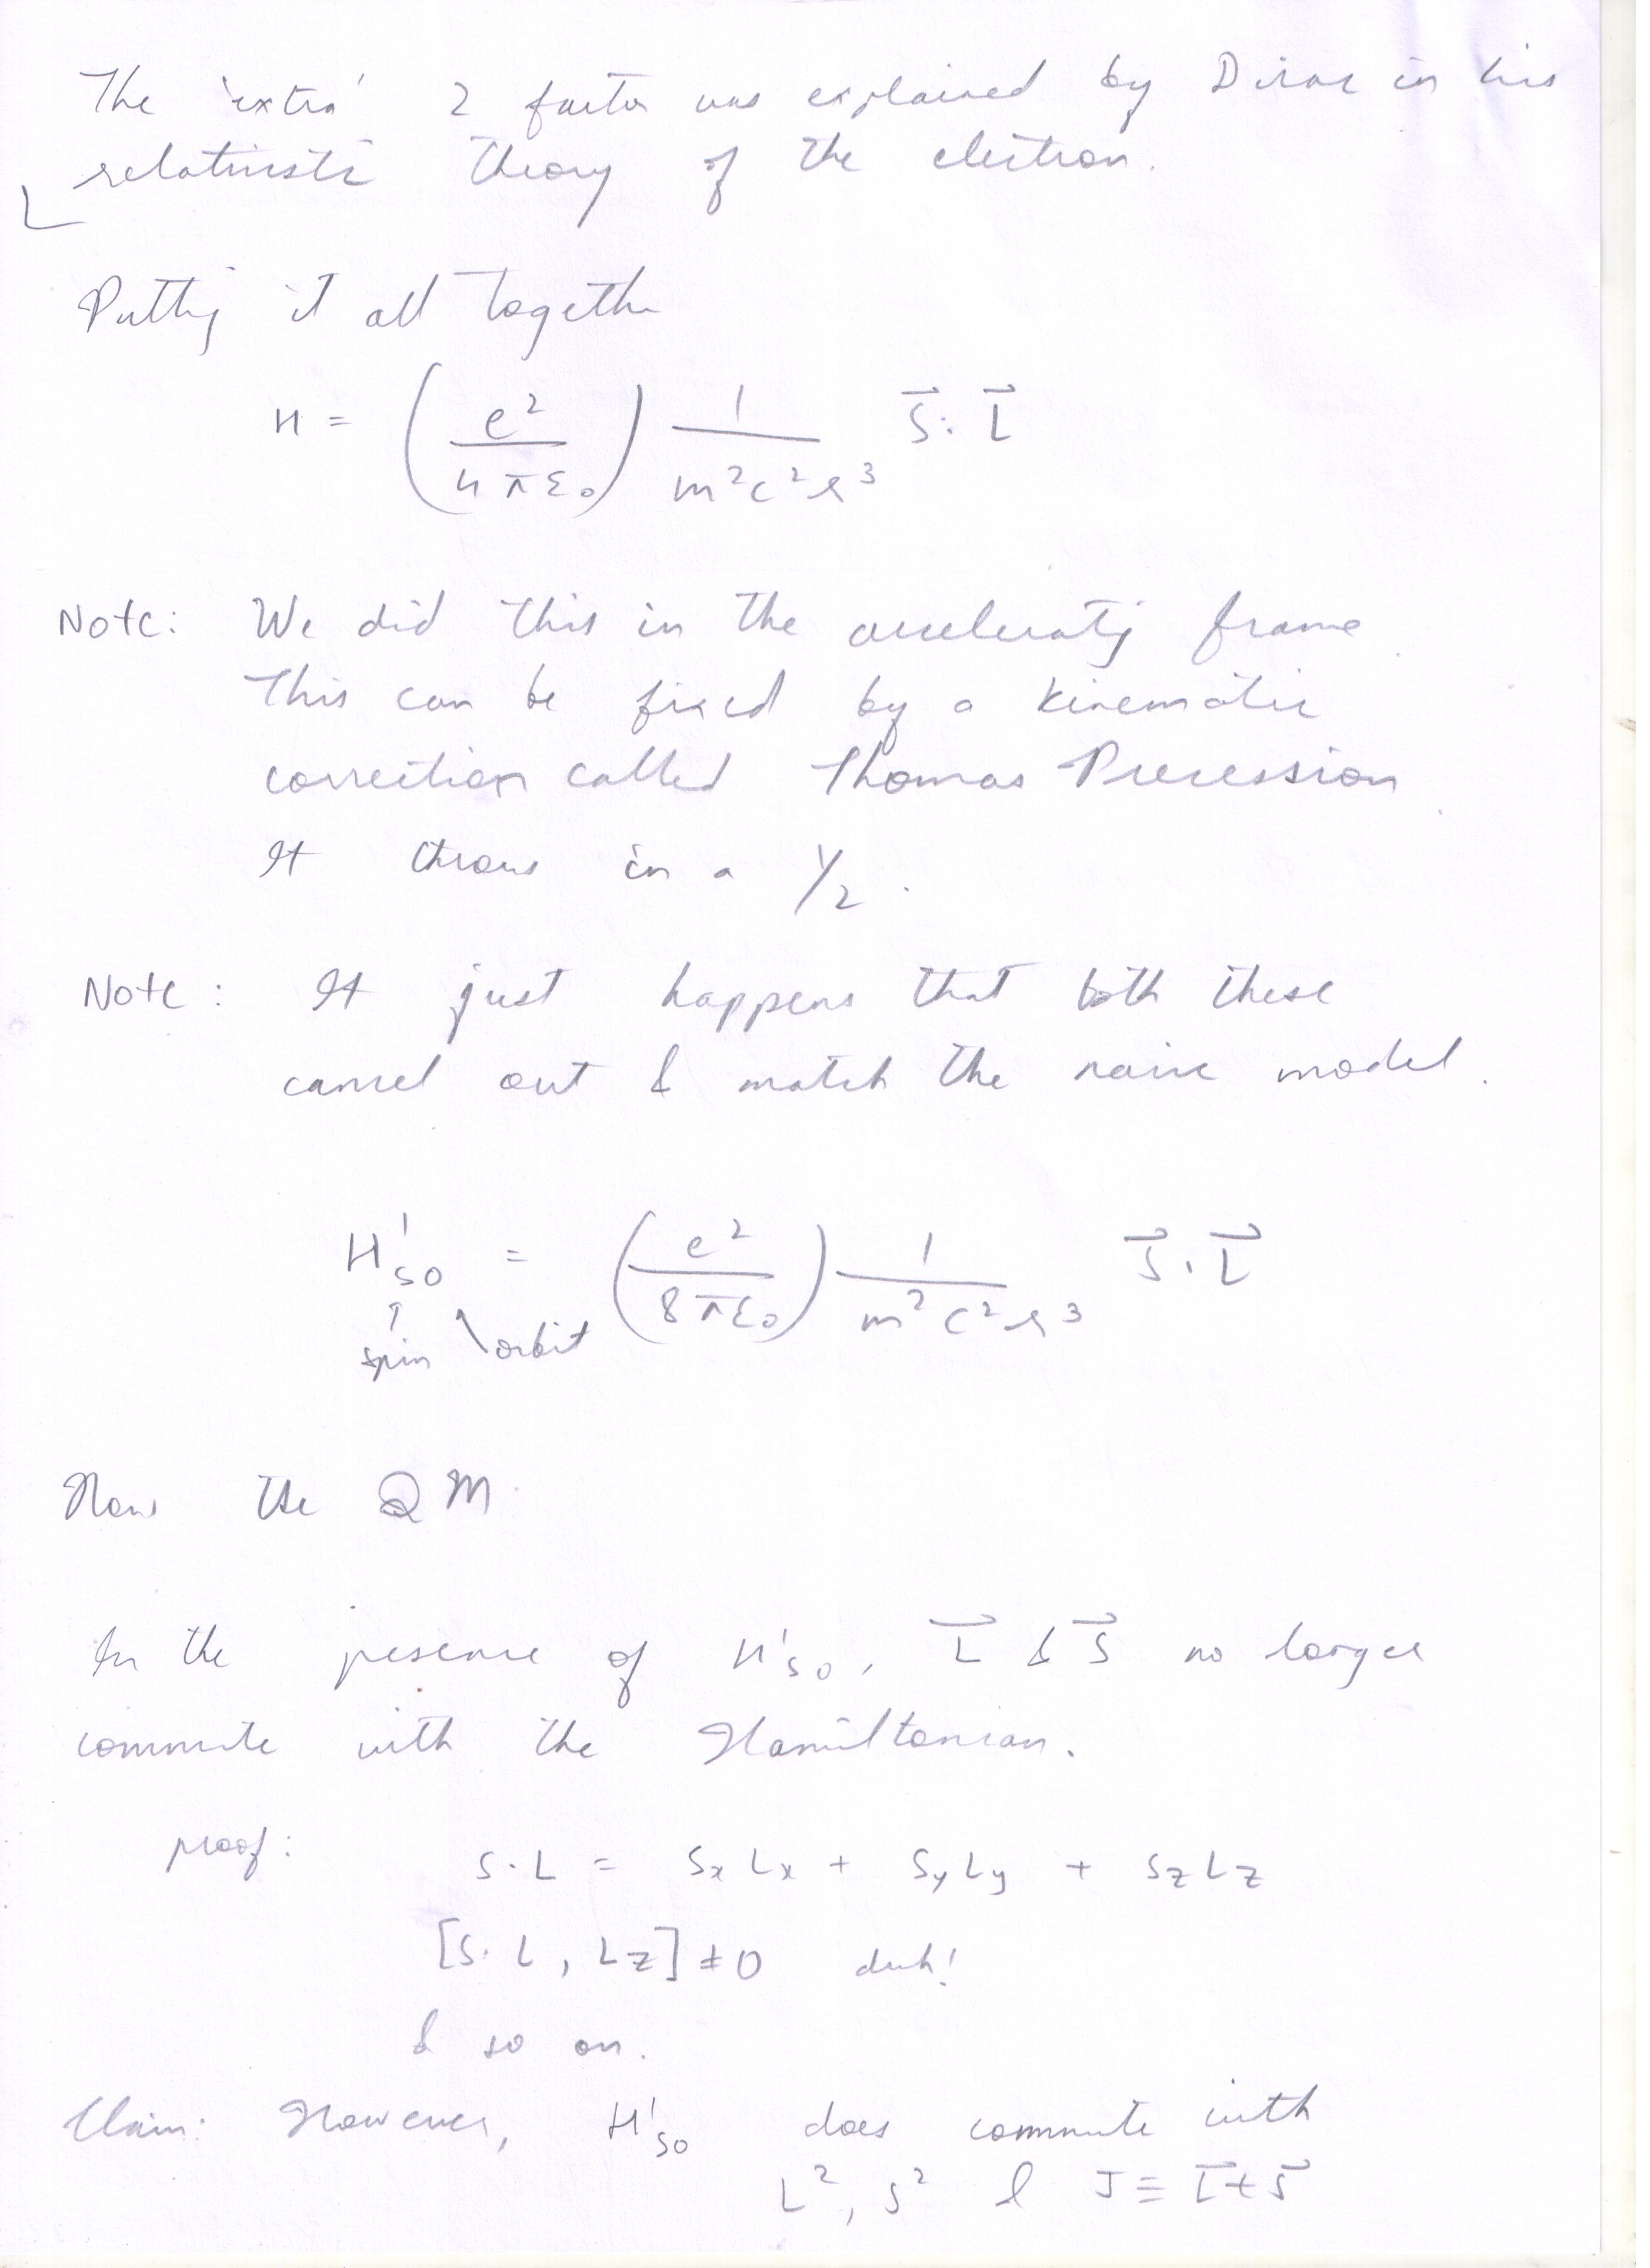 The 'extra' 2 factor was explained by Dirac in his
relativistic theory of the electron.
Putting it all together
H = (e²/4πε₀) 1/m²c²r³ S⃗·L⃗
Note: We did this in the accelerating frame.
This can be fixed by a kinematic
correction called Thomas Precession.
It throws in a 1/2.
Note: It just happens that both these
cancel out & match the naive model.
H'so = (e²/8πε₀) 1/m²c²r³ S⃗·L⃗
spin orbit
Now the QM.
In the presence of H'so, L⃗ & S⃗ no longer
commute with the Hamiltonian.
proof: S·L = SxLx + SyLy + SzLz
[S·L, Lz] ≠ 0 duh!
& so on.
Claim: However, H'so does commute with
L², S² & J ≡ L⃗+S⃗